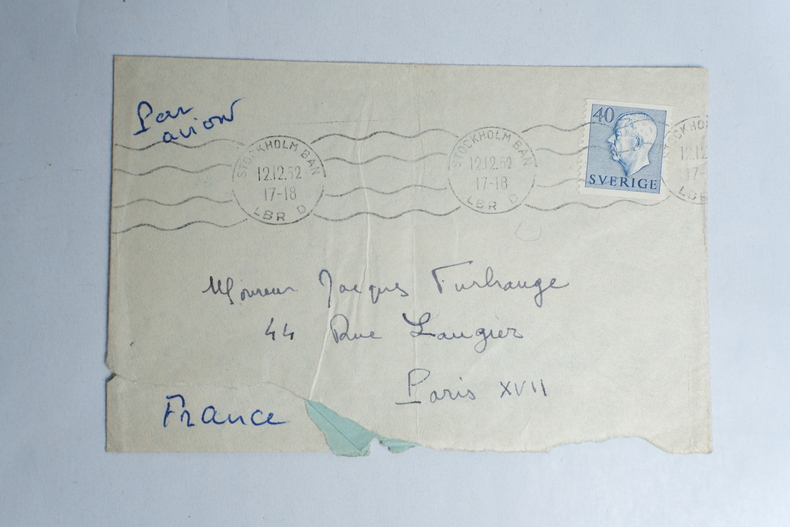 Par
avion
STOCKHOLM BAN
12.12.52
17-18
LBR D
STOCKHOLM BAN
12.12.52
17-18
LBR D
40
SVERIGE
Monsieur Jacques
44 Rue Laugier
Paris XVII
France